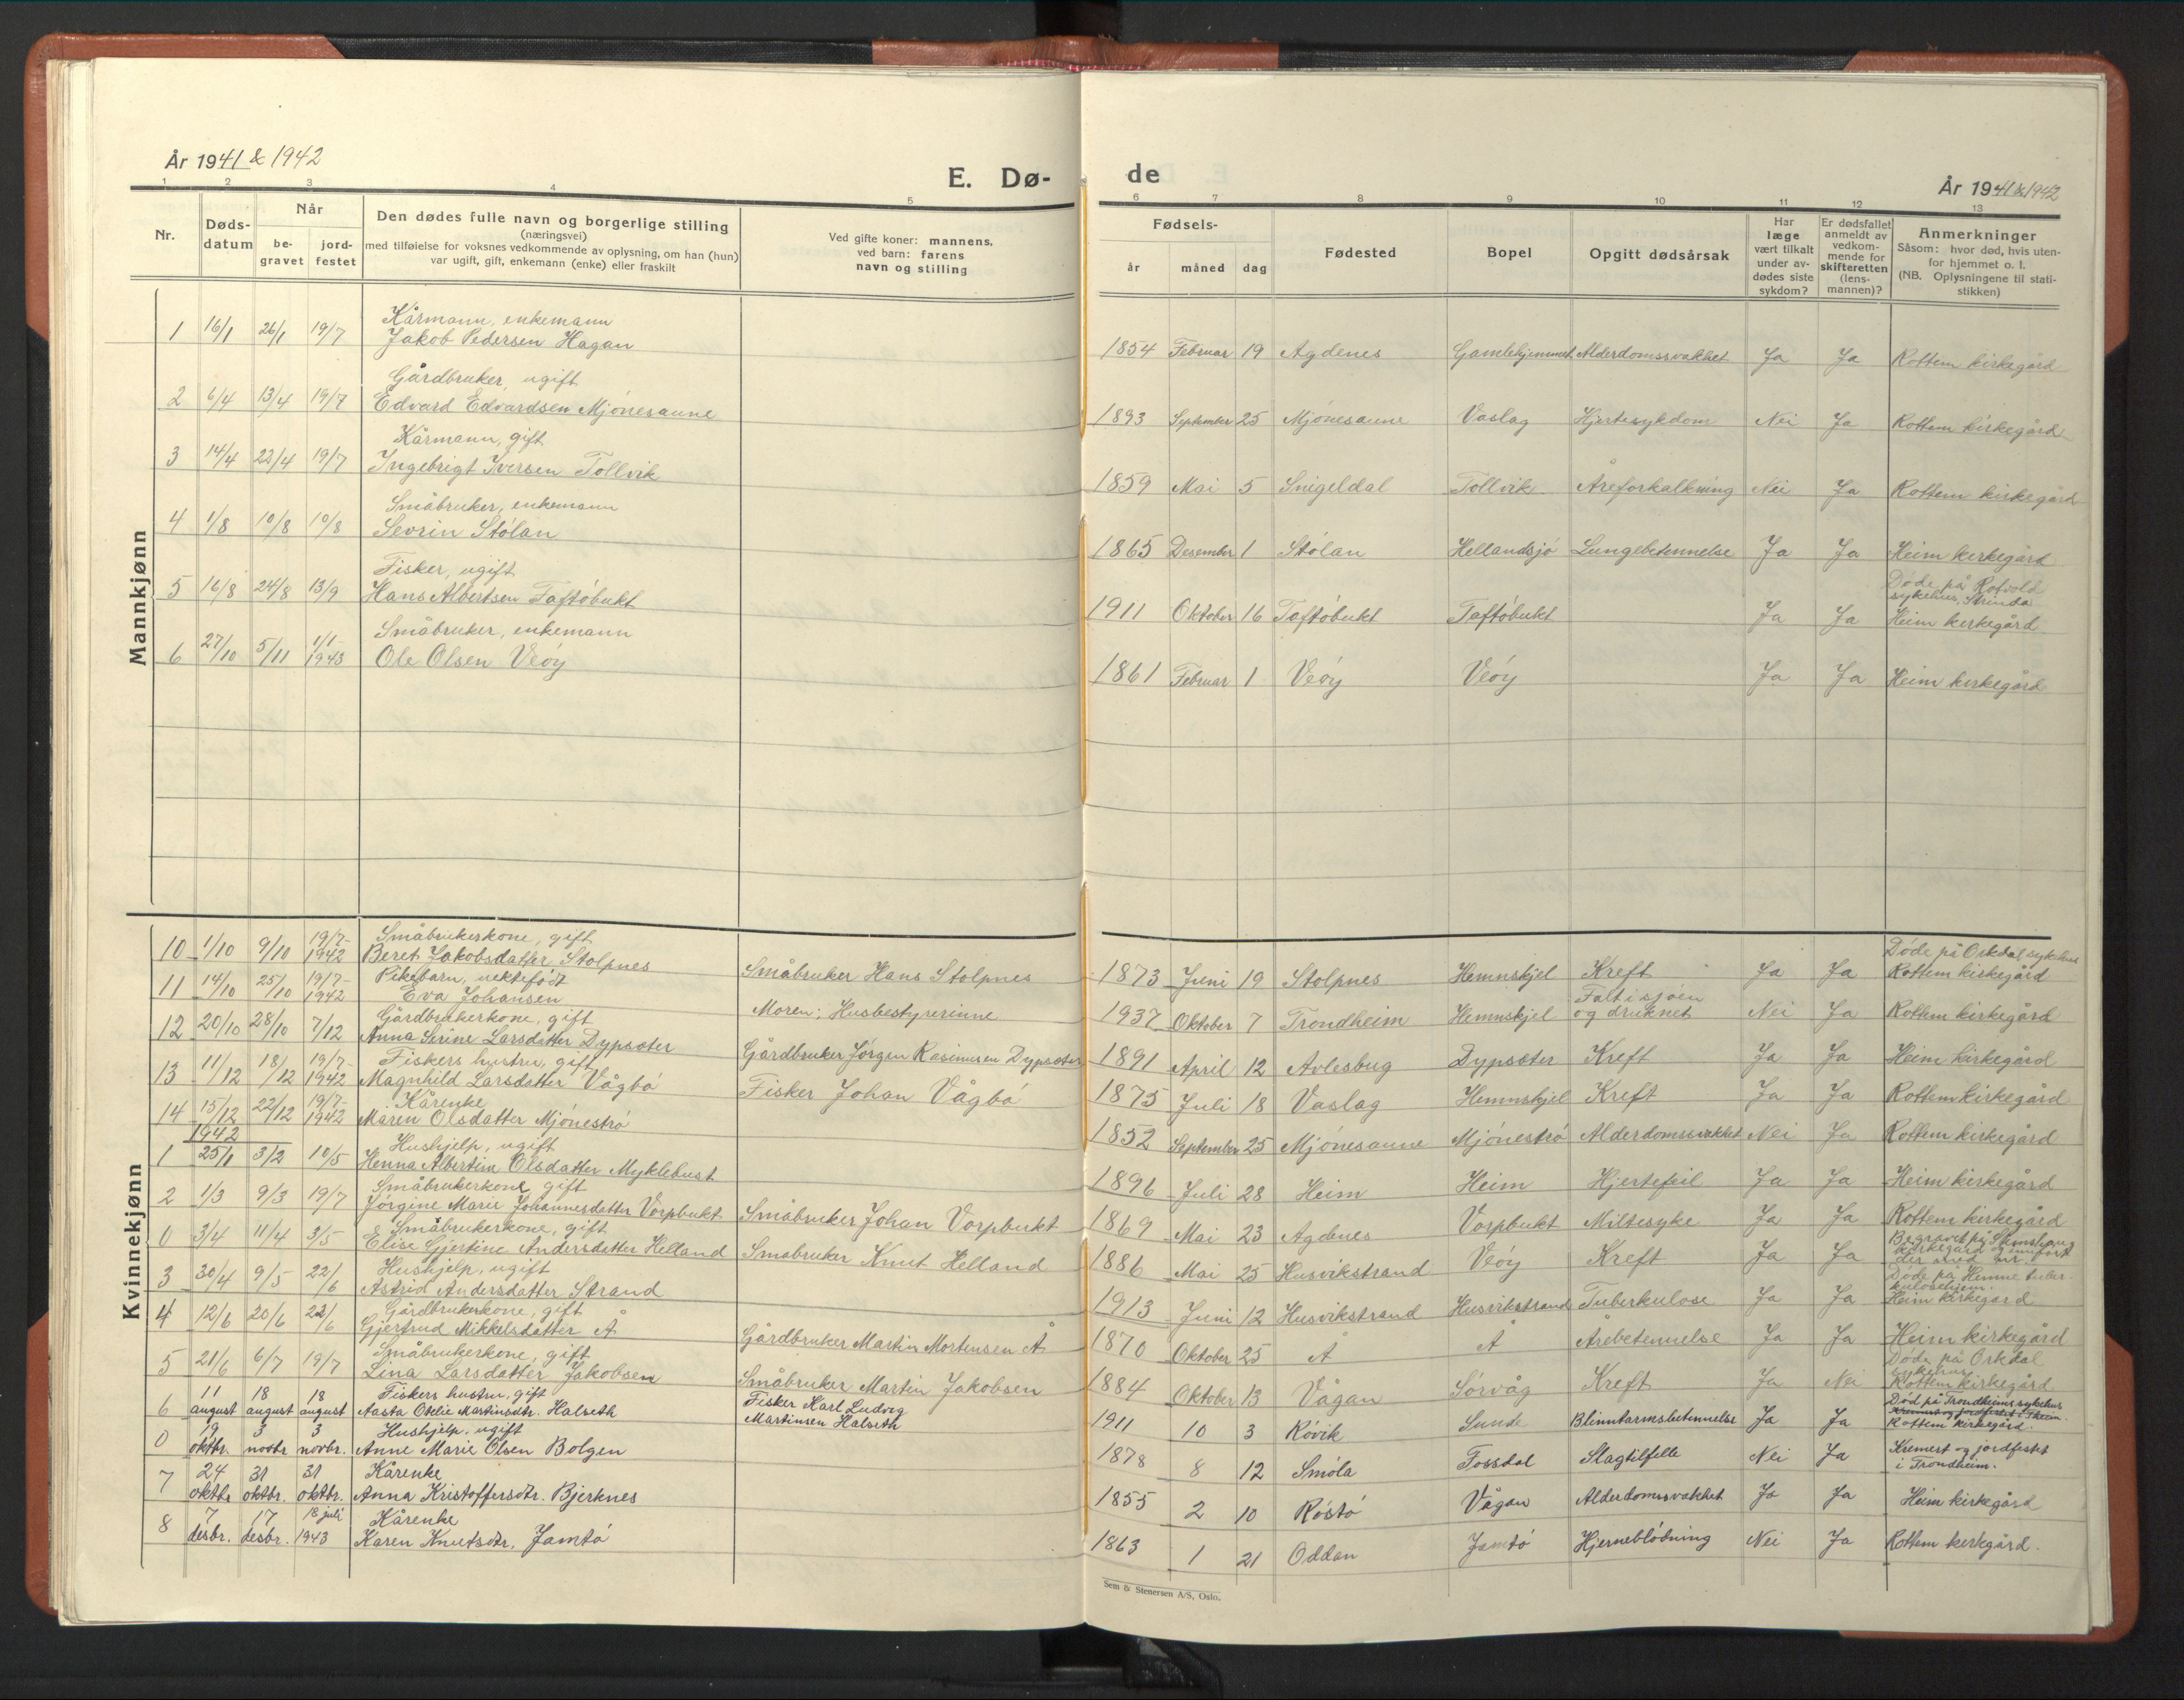 År 1941 & 1942
E. Dø-
de
År 1941 & 1942
1 2 3 4 5 6 7 8 9 10 11 12 13
Nr.
Døds-
datum
Når
be-
gravet
jord-
festet
Den dødes fulle navn og borgerlige stilling
(næringsvei)
med tilføielse for voksnes vedkommende av oplysning, om han (hun)
var ugift, gift, enkemann (enke) eller fraskilt
Ved gifte koner: mannens,
ved barn: farens
navn og stilling
Fødsels-
år måned dag
Fødested
Bopel
Opgitt dødsårsak
Har
læge
vært tilkalt
under av-
dødes siste
sykdom?
Er dødsfallet
anmeldt av
vedkom-
mende for
skifteretten
(lens-
mannen)?
Anmerkninger
Såsom: hvor død, hvis uten-
for hjemmet o. l.
(NB. Oplysningene til stati-
stikken)
Mannkjønn
Kårmann, enkemann
1 16/1 26/1 19/7 Jakob Pedersen Hagan 1854 Februar 19 Agdenes Gamlehjemmet Alderdomssvakhet Ja Ja Rottem kirkegård
Gårdbruker, ugift
2 6/4 13/4 19/7 Edvard Edvardsen Mjønesaune 1893 September 25 Mjønesaune Vaslag Hjertesykdom Nei Ja Rottem kirkegård
Kårmann, gift
3 14/4 22/4 19/7 Ingebrigt Iversen Tollvik 1859 Mai 5 Snigeldal Tollvik Åreforkalkning Nei Ja Rottem kirkegård
Småbruker, enkemann
4 1/8 10/8 10/8 Sevrin Stølan 1865 Desember 1 Stølan Hellandsjø Lungebetennelse Ja Ja Heim kirkegård
Fisker, ugift
Døde på Rotvold
sykehus, Strinda
5 16/8 24/8 13/9 Hans Albertsen Taftøbukt 1911 Oktober 16 Taftøbukt Taftøbukt Ja Ja Heim kirkegård
Småbruker, enkemann
6 27/10 5/11 1/1-1943 Ole Olsen Veøy 1861 Februar 1 Veøy Veøy Ja Ja Heim kirkegård
Kvinnekjønn
Småbrukerkone, gift
Døde på Orkdal sykehus
10 1/10 9/10 19/7-1942 Beret Jakobsdatter Stolpnes Småbruker Hans Stolpnes 1873 Juni 19 Stolpnes Hemnskjel Kreft Ja Ja Rottem kirkegård
Pikebarn, uektefødt
Falt i sjøen
11 14/10 25/10 19/7-1942 Eva Johansen Moren: Husbestyrerinne 1937 Oktober 7 Trondheim Hemnskjel og druknet Nei Ja Rottem kirkegård
Gårdbrukerkone, gift
12 20/10 28/10 7/12 Anna Serine Larsdatter Dypsæter Gårdbruker Jørgen Rasmusen Dypsæter 1891 April 12 Avlesbug Dypsæter Kreft Ja Ja Heim kirkegård
Fiskers hustru, gift
13 11/12 18/12 19/7-1942 Magnhild Larsdatter Vågbø Fisker Johan Vågbø 1875 Juli 18 Vaslag Hemnskjel Kreft Ja Ja Rottem kirkegård
Kårenke
14 15/12 22/12 19/7-1942 Maren Olsdatter Mjønestrø 1852 September 25 Mjønesaune Mjønestrø Alderdomssvakhet Nei Ja Rottem kirkegård
1942
Hushjelp, ugift
1 25/1 3/2 10/5 Henna Albertine Olsdatter Myklebust 1896 Juli 28 Heim Heim Hjertefeil Ja Ja Heim kirkegård
Småbrukerkone, gift
2 1/3 9/3 19/7 Jørgine Marie Johannesdatter Vorpbukt Småbruker Johan Vorpbukt 1869 Mai 23 Agdenes Vorpbukt Miltesyke Ja Ja Rottem kirkegård
Småbrukerkone, gift
Begravet på
kirkegård og innført
0 3/4 11/4 3/5 Elise Gjertine Andersdatter Helland Småbruker Knut Helland 1886 Mai 25 Husvikstrand Veøy Kreft Ja Ja der med nr.
Hushjelp, ugift
Døde på Hemne tuber-
kulosehjem.
3 30/4 9/5 22/6 Astrid Andersdatter Strand 1913 Juni 12 Husvikstrand Husvikstrand Tuberkulose Ja Ja Heim kirkegård
Gårdbrukerkone, gift
4 12/6 20/6 22/6 Gjertrud Mikkelsdatter Å Gårdbruker Martin Mortensen Å 1870 Oktober 25 Å Å Årebetennelse Ja Ja Heim kirkegård
Småbrukerkone, gift
Døde på Orkdal
sykehus
5 21/6 6/7 19/7 Lina Larsdatter Jakobsen Småbruker Martin Jakobsen 1884 Oktober 13 Vågan Sørvåg Kreft Ja Nei Rottem kirkegård
11 18 18 Fiskers hustru, gift Fisker Karl Ludvig Død på Trondheims sykehus
6 august august august Aasta Otelie Martinsdtr. Halseth Martinsen Halseth 1911 10 3 Røvik Sunde Blinntarmsbetennelse Ja Ja Rottem kirkegård.
19 3 3 Hushjelp, ugift Kremert og jordfestet
0 oktbr. novbr. novbr. Anne Marie Olsen Bolgen 1878 8 12 Smøla Fossdal Slagtilfelle Nei Ja i Trondheim.
24 31 31 Kårenke
7 oktbr. oktbr. oktbr. Anna Kristoffersdtr. Bjerknes 1855 2 10 Røstø Vågan Alderdomssvakhet Ja Ja Heim kirkegård
7 17 18 juli Kårenke
8 desbr. desbr. 1943 Karen Knutsdtr. Jamtø 1863 1 21 Oddan Jamtø Hjerneblødning Nei Ja Rottem kirkegård.
Sem & Stenersen A/S, Oslo.